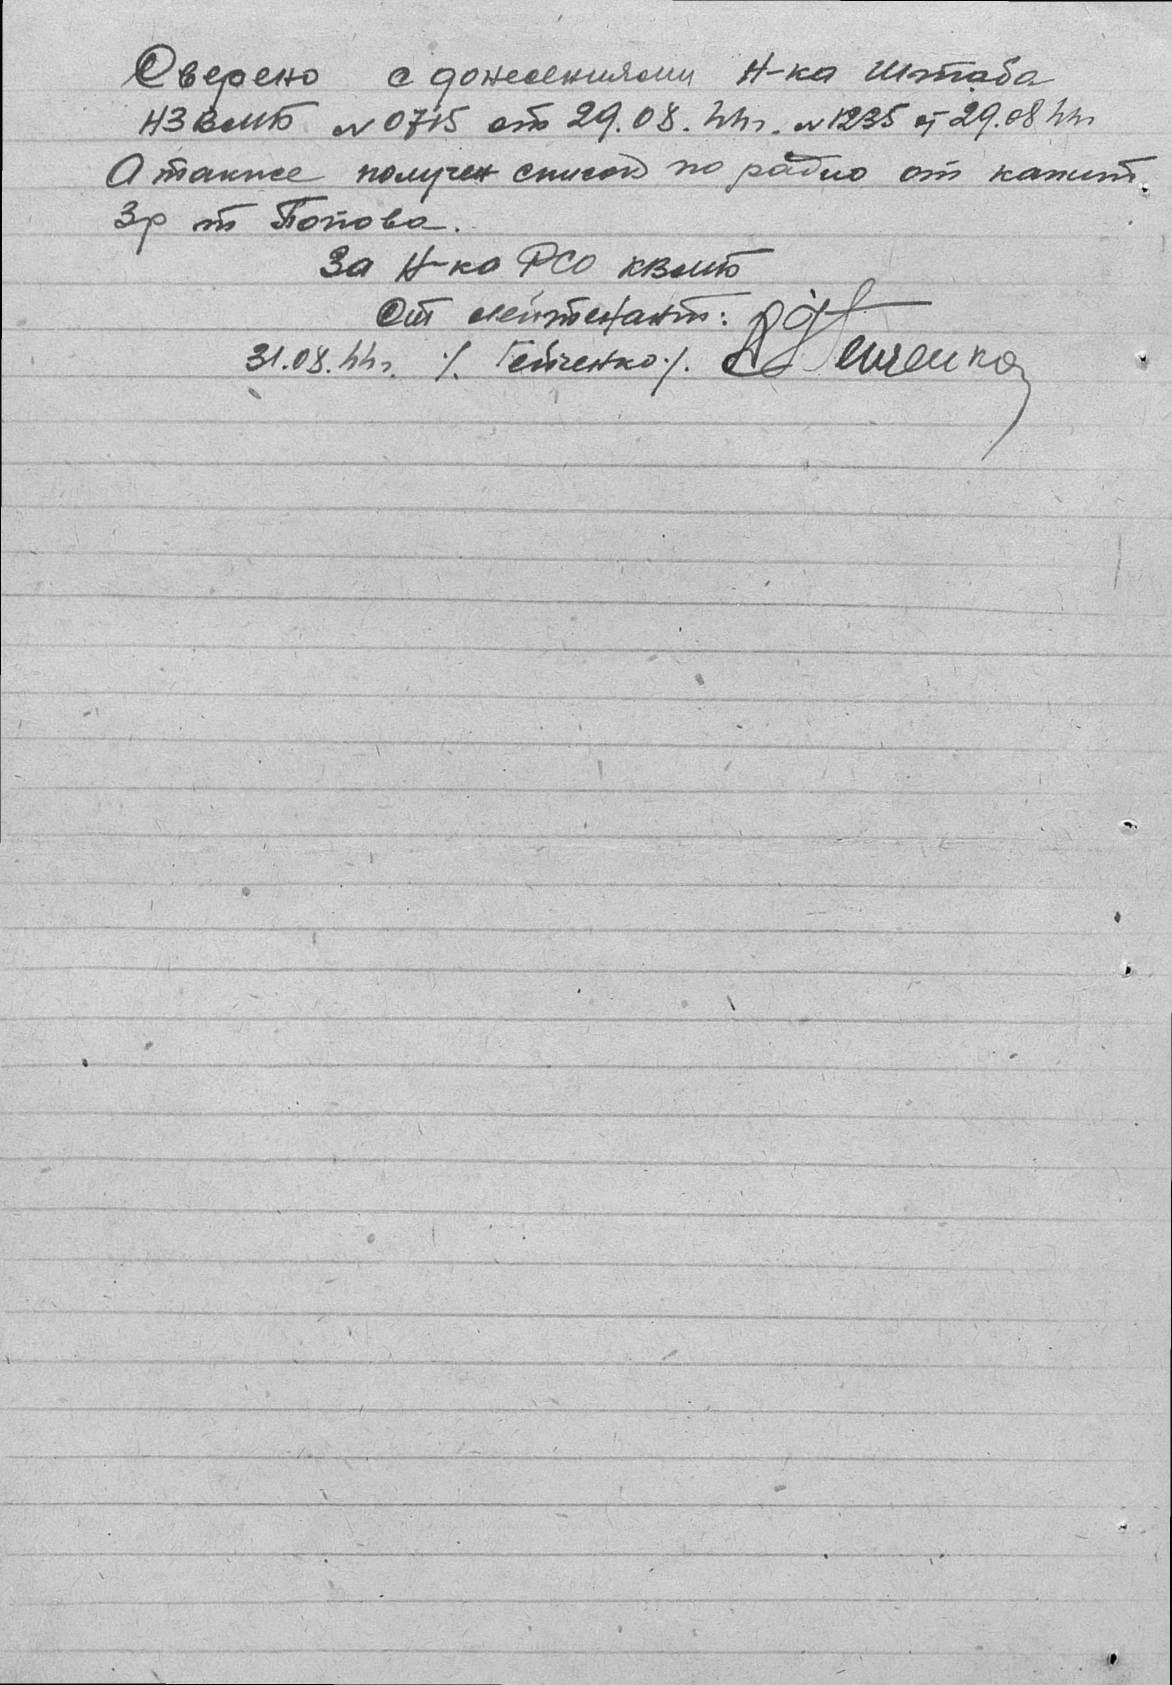 Сверено с донесениями Н-ка Штаба
НЗВМБ № 0715 от 29.08.44г. № 1235 от 29.08 44г
А также получен список по радио от капит.
3р т Попова.
За Н-ка РСО КВМБ
Ст лейтенант:
31.08.44г. /. Гейченко /.